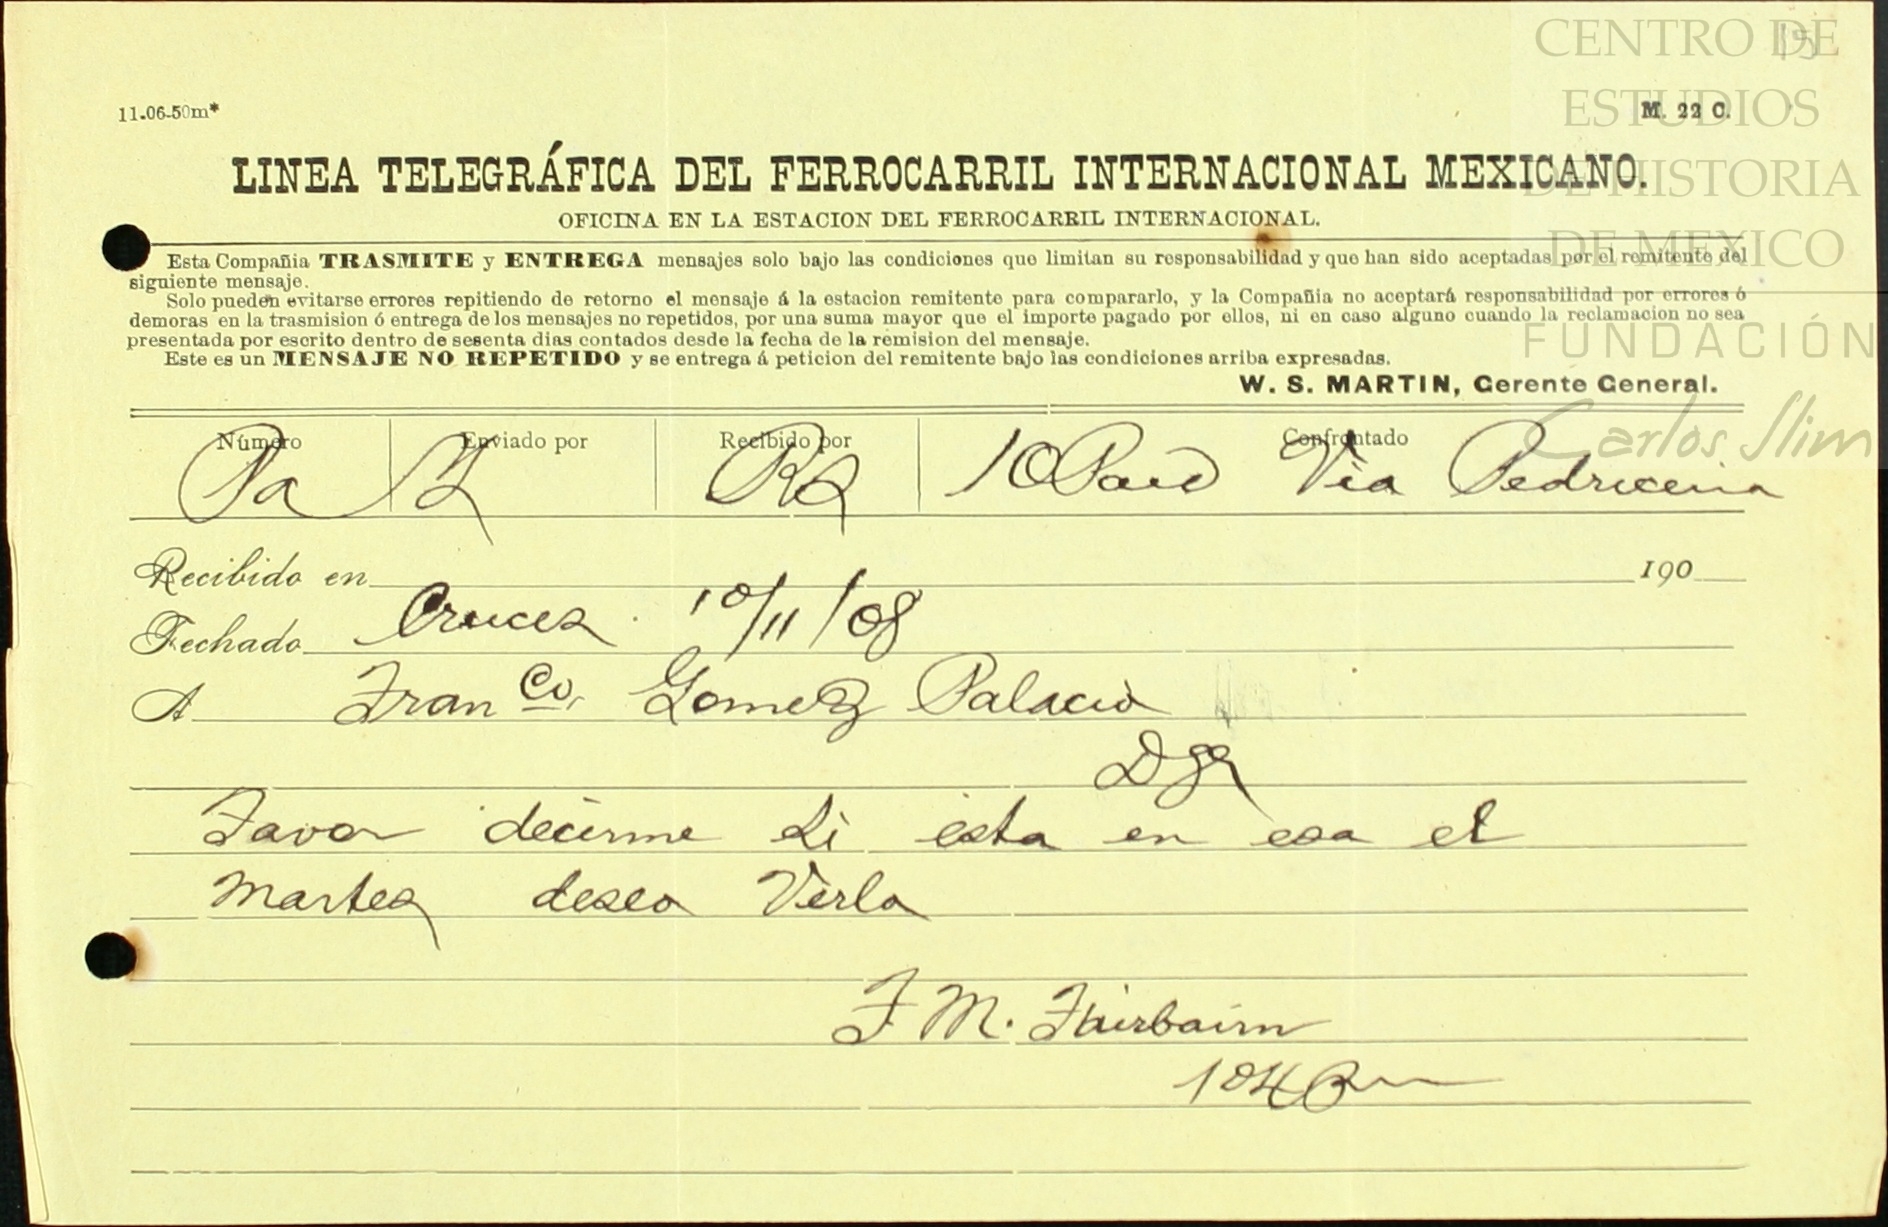 15
CENTRO DE
ESTUDIOS
DE HISTORIA
DE MEXICO
FUNDACIÓN
Carlos Slim
11.06-50m* M. 22 C.
LINEA TELEGRÁFICA DEL FERROCARRIL INTERNACIONAL MEXICANO.
OFICINA EN LA ESTACION DEL FERROCARRIL INTERNACIONAL.
Esta Compañia TRASMITE y ENTREGA mensajes solo bajo las condiciones que limitan su responsabilidad y que han sido aceptadas por el remitente del
siguiente mensaje.
Solo pueden evitarse errores repitiendo de retorno el mensaje á la estacion remitente para compararlo, y la Compañia no aceptará responsabilidad por errores ó
demoras en la trasmision ó entrega de los mensajes no repetidos, por una suma mayor que el importe pagado por ellos, ni en caso alguno cuando la reclamacion no sea
presentada por escrito dentro de sesenta dias contados desde la fecha de la remision del mensaje.
Este es un MENSAJE NO REPETIDO y se entrega á peticion del remitente bajo las condiciones arriba expresadas.
W. S. MARTIN, Gerente General.
Número Enviado por Recibido por Confrontado
Pa 10 Paid Via Pedricena
Recibido en 190
Fechado Cruces. 10/11/08
A Fran Co. Gomez Palacio
Dgo
Favor decirme si esta en esa el
Martes deseo Verlo
F M. Fairbairn
104 Pm